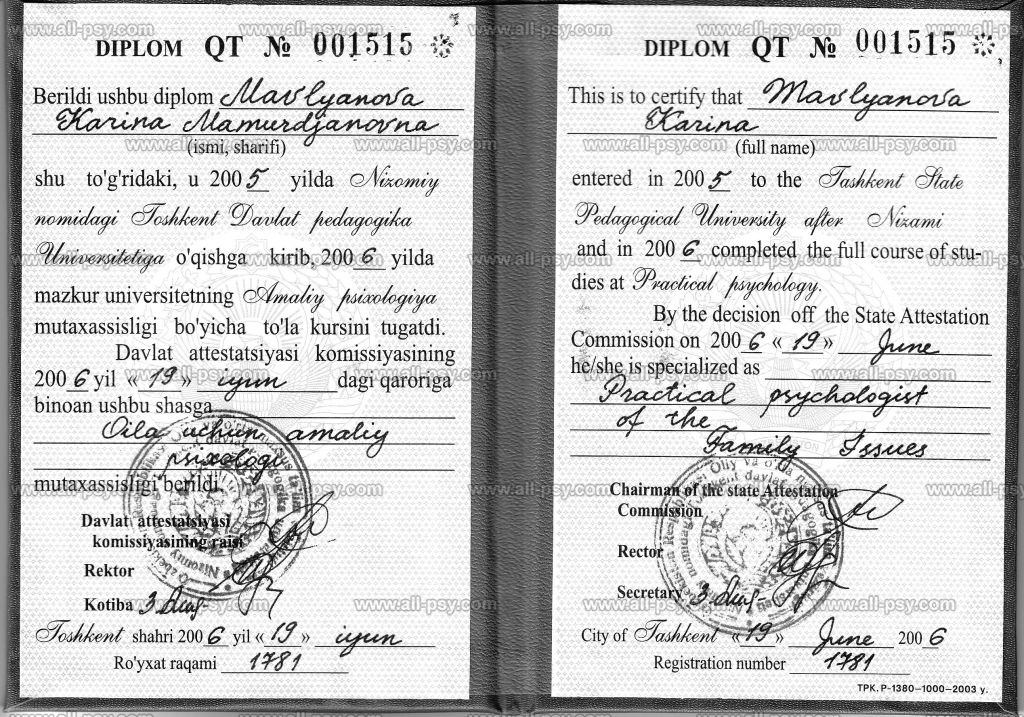 DIPLOM QT № 001515
Berildi ushbu diplom Mavlyanova
Karina Mamurdjanovna
(ismi, sharifi)
shu to'g'ridaki, u 2005 yilda Nizomiy
nomidagi Toshkent Davlat pedagogika
Universitetiga o'qishga kirib, 2006 yilda
mazkur universitetning Amaliy psixologiya
mutaxassisligi bo'yicha to'la kursini tugatdi.
Davlat attestatsiyasi komissiyasining
2006 yil «19» iyun dagi qaroriga
binoan ushbu shasga
Oila uchun amaliy
psixologi
mutaxassisligi berildi.
Davlat attestatsiyasi
komissiyasining raisi
Rektor
Kotiba
Toshkent shahri 2006 yil «19» iyun
Ro'yxat raqami 1781
DIPLOM QT № 001515
This is to certify that Mavlyanova
Karina
(full name)
entered in 2005 to the Tashkent State
Pedagogical University after Nizami
and in 2006 completed the full course of stu-
dies at Practical psychology.
By the decision off the State Attestation
Commission on 2006 «19» June
he/she is specialized as
Practical psychologist
of the
Family Issues
Chairman of the state Attestation
Commission
Rector
Secretary
City of Tashkent «19» June 2006
Registration number 1781
ТРК. Р-1380-1000-2003 у.
www.all-psy.com